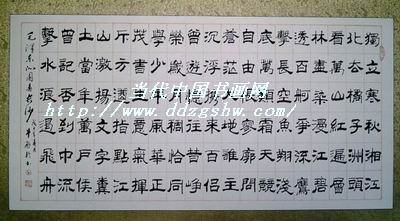 獨立寒秋湘江
北去橘子洲頭
看萬山紅遍層
林盡染漫江碧
透百舸爭流鷹
擊長空魚翔淺
底萬類霜天競
自由悵寥廓問
蒼茫大地誰主
沉浮攜來百侶
曾遊憶往昔崢
嶸歲月稠恰同
學少年風華正
茂書生意氣揮
斥方遒指點江
山激揚文字糞
土當年萬戶侯
曾記否到中流
擊水浪遏飛舟
毛澤東沁園春長沙
当代中国书画网
www.ddzgshw.com